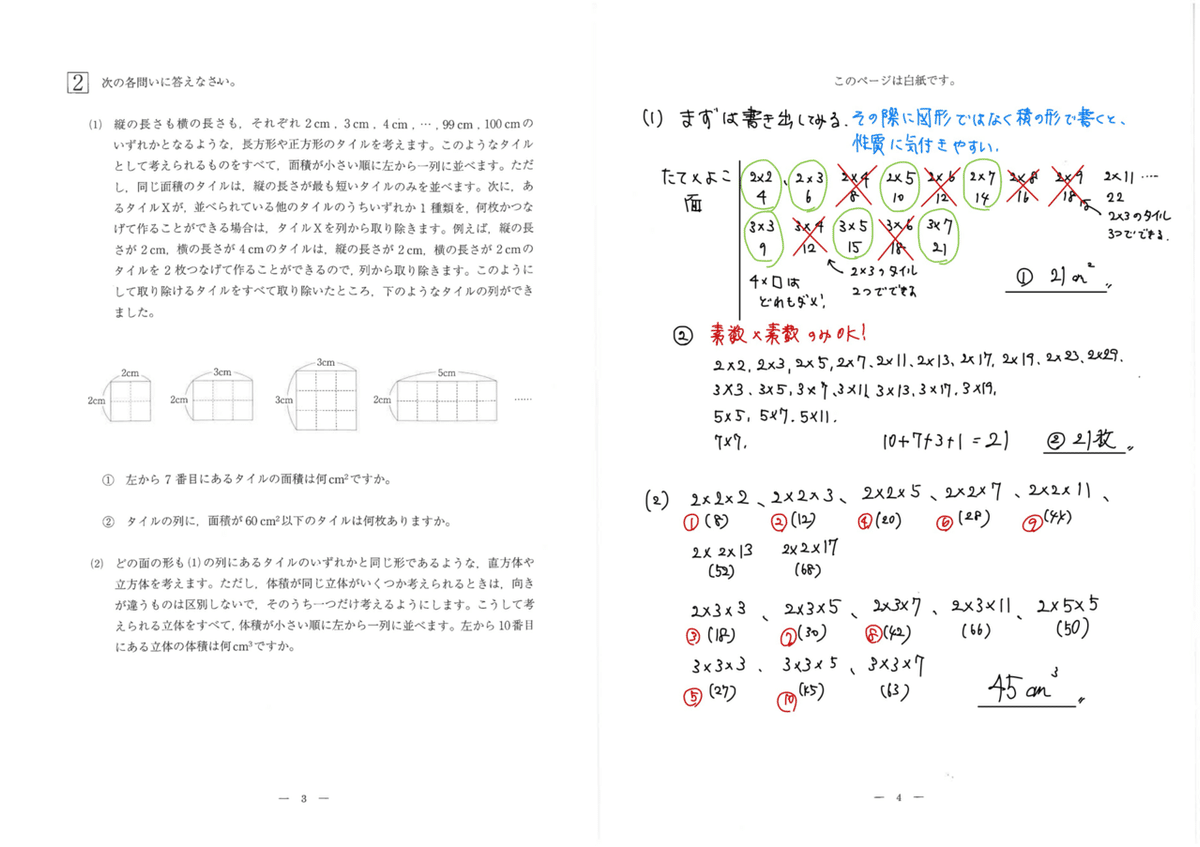 2 次の各問いに答えなさい。
(1) 縦の長さも横の長さも，それぞれ 2 cm , 3 cm , 4 cm , … , 99 cm , 100 cm の
いずれかとなるような，長方形や正方形のタイルを考えます。このようなタイル
として考えられるものをすべて，面積が小さい順に左から一列に並べます。ただ
し，同じ面積のタイルは，縦の長さが最も短いタイルのみを並べます。次に，あ
るタイルXが，並べられている他のタイルのうちいずれか 1 種類を，何枚かつな
げて作ることができる場合は，タイルXを列から取り除きます。例えば，縦の長
さが 2cm，横の長さが 4cm のタイルは，縦の長さが 2cm，横の長さが 2cm の
タイルを 2 枚つなげて作ることができるので，列から取り除きます。このように
して取り除けるタイルをすべて取り除いたところ，下のようなタイルの列ができ
ました。
2cm 3cm 3cm 5cm
2cm 2cm 3cm 2cm ……
① 左から 7 番目にあるタイルの面積は何 cm²ですか。
② タイルの列に，面積が 60 cm²以下のタイルは何枚ありますか。
(2) どの面の形も (1) の列にあるタイルのいずれかと同じ形であるような，直方体や
立方体を考えます。ただし，体積が同じ立体がいくつか考えられるときは，向き
が違うものは区別しないで，そのうち一つだけ考えるようにします。こうして考
えられる立体をすべて，体積が小さい順に左から一列に並べます。左から 10 番目
にある立体の体積は何 cm³ですか。
― 3 ―
このページは白紙です。
(1) まずは書き出してみる．その際に図形ではなく積の形で書くと、
性質に気付きやすい.
たて×よこ 2×2、2×3 2×4 2×5 2×6 2×7 2×8 2×9 2×11 ……
面 4 6 8 10 12 14 16 18 22
2×3のタイル
3つでできる.
3×3 3×4 3×5 3×6 3×7
9 12 15 18 21
2×3のタイル
2つでできる
4×□は
どれもダメ!
① 21cm²
② 素数×素数 のみOK!
2×2, 2×3, 2×5, 2×7, 2×11, 2×13, 2×17, 2×19, 2×23, 2×29.
3×3, 3×5, 3×7, 3×11, 3×13, 3×17, 3×19,
5×5, 5×7, 5×11.
7×7. 10+7+3+1=21 ② 21枚
(2) 2×2×2、2×2×3、2×2×5、2×2×7、2×2×11、
①(8) ②(12) ④(20) ⑥(28) ⑨(44)
2×2×13 2×2×17
(52) (68)
2×3×3、2×3×5、2×3×7、2×3×11、2×5×5
③(18) ⑦(30) ⑧(42) (66) (50)
3×3×3、3×3×5、3×3×7
⑤(27) ⑩(45) (63)
45cm³
― 4 ―